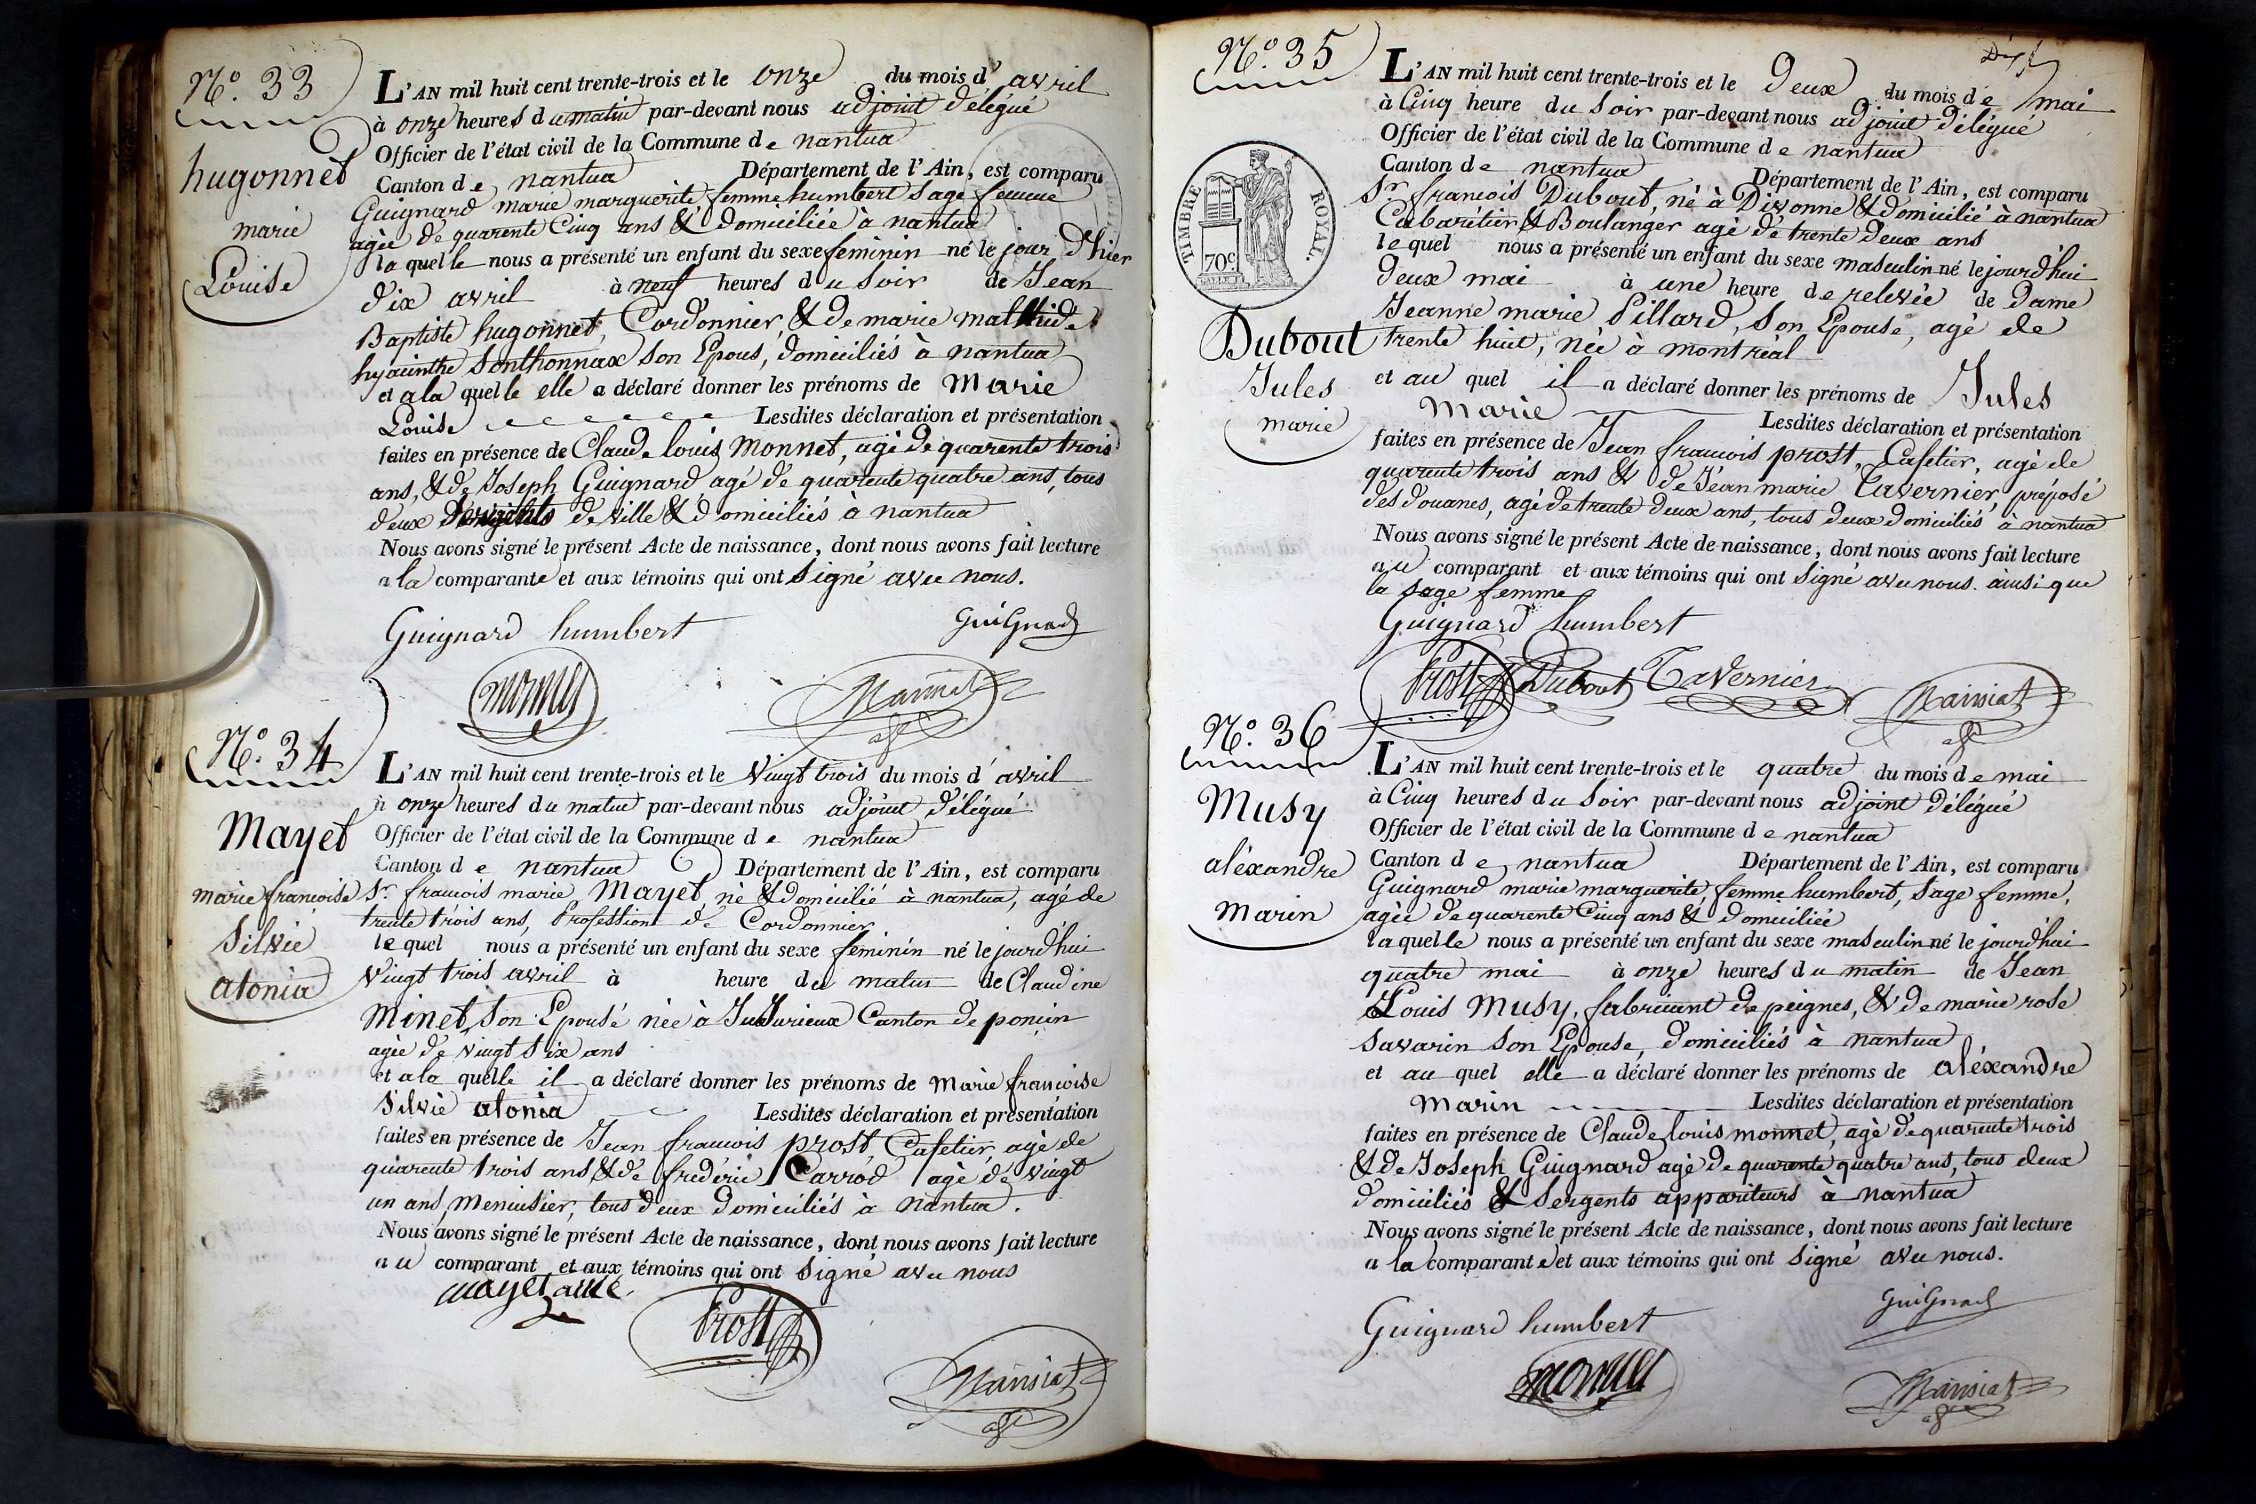 N.o 33
hugonnet
marie
Louise
L'AN mil huit cent trente-trois et le onze du mois d' avril
à onze heures du matin par-devant nous adjoint délégué
Officier de l'état civil de la Commune de nantua
Canton de nantua Département de l'Ain, est comparu
Guignard marie marguerite femme humbert sage femme
agèe de quarente Cinq ans & domiciliée à nantua
la quelle nous a présenté un enfant du sexe feminin né le jour d'hier
dix avril à neuf heures du Soir de Jean
Baptiste hugonnet, Cordonnier, & de marie mathide
hyacinthe Sonthonnax son Epous, domiciliés à nantua
et a la quelle elle a déclaré donner les prénoms de Marie
Louise Lesdites déclaration et présentation
faites en présence de Claude louis Monnet, agé de quarente trois
ans, & de Joseph Guignard agé de quarente quatre ans, tous
deux de ville & domiciliés à nantua
Nous avons signé le présent Acte de naissance, dont nous avons fait lecture
a la comparante et aux témoins qui ont Signé avec nous.
Guignard humbert
GuiGnard
monnet
N.o 34
Mayet
marie françoise
Silvie
atonia
L'AN mil huit cent trente-trois et le Vingt trois du mois d' avril
à onze heures du matin par-devant nous adjoint délégué
Officier de l'état civil de la Commune de nantua
Canton de nantua Département de l'Ain, est comparu
Sr. francois marie Mayet, né & domicilié à nantua, agé de
trente trois ans, Profession de Cordonnier
le quel nous a présenté un enfant du sexe féminin né le jourd'hui
Vingt trois avril à heure du matin de Claudine
Minet, Son Epouse née à JuJurieux Canton de poncin
agèe de vingt Six ans
et a la quelle il a déclaré donner les prénoms de Marie francoise
Silvie atonia Lesdites déclaration et présentation
faites en présence de Jean francois prost, Cafetier, agé de
quarente trois ans & de frederic Carrod agé de Vingt
un ans, Menuisier, tous deux domiciliés à Nantua.
Nous avons signé le présent Acte de naissance, dont nous avons fait lecture
au comparant et aux témoins qui ont Signé avec nous
mayet ainé
Prost
N.o 35
TIMBRE ROYAL.
70c
Dubout
Jules
marie
L'AN mil huit cent trente-trois et le Deux du mois de mai
à Cinq heure du Soir par-devant nous adjoint délégué
Officier de l'état civil de la Commune de nantua
Canton de nantua Département de l'Ain, est comparu
Sr. francois Dubout, né à Divonne & domicilié à nantua
Cabarétier & Boulanger agé de trente deux ans
le quel nous a présenté un enfant du sexe masculin né le jourd'hui
deux mai à une heure de relevée de Dame
Jeanne marie Pillard, Son Epouse, agé de
trente huit, née à montréal
et au quel il a déclaré donner les prénoms de Jules
Marie Lesdites déclaration et présentation
faites en présence de Jean francois prost, Cafetier, agé de
quarente trois ans & de Jean marie Tavernier, préposé
des douanes, agé de trente deux ans, tous deux domiciliés à nantua
Nous avons signé le présent Acte de naissance, dont nous avons fait lecture
au comparant et aux témoins qui ont Signé avec nous. ainsi que
la sage femme
Guignard humbert
Prost Dubout Tavernier
N.o 36
Musy
aléxandre
Marin
L'AN mil huit cent trente-trois et le quatre du mois de mai
à Cinq heures du Soir par-devant nous adjoint délégué
Officier de l'état civil de la Commune de nantua
Canton de nantua Département de l'Ain, est comparu
Guignard marie marguerite femme humbert, Sage femme,
agèe de quarente Cinq ans & domiciliée
la quelle nous a présenté un enfant du sexe masculin né le jourd'hui
quatre mai à onze heures du matin de Jean
Louis Musy, fabricant de peignes, & de marie rose
Savarin Son Epouse, domiciliés à nantua
et au quel elle a déclaré donner les prénoms de aléxandre
Marin Lesdites déclaration et présentation
faites en présence de Claude louis monnet, agé de quarente trois
& de Joseph Guignard agé de quarente quatre ans, tous deux
domiciliés & Sergents appariteurs à nantua
Nous avons signé le présent Acte de naissance, dont nous avons fait lecture
a la comparante et aux témoins qui ont Signé avec nous.
Guignard humbert
GuiGnard
monnet